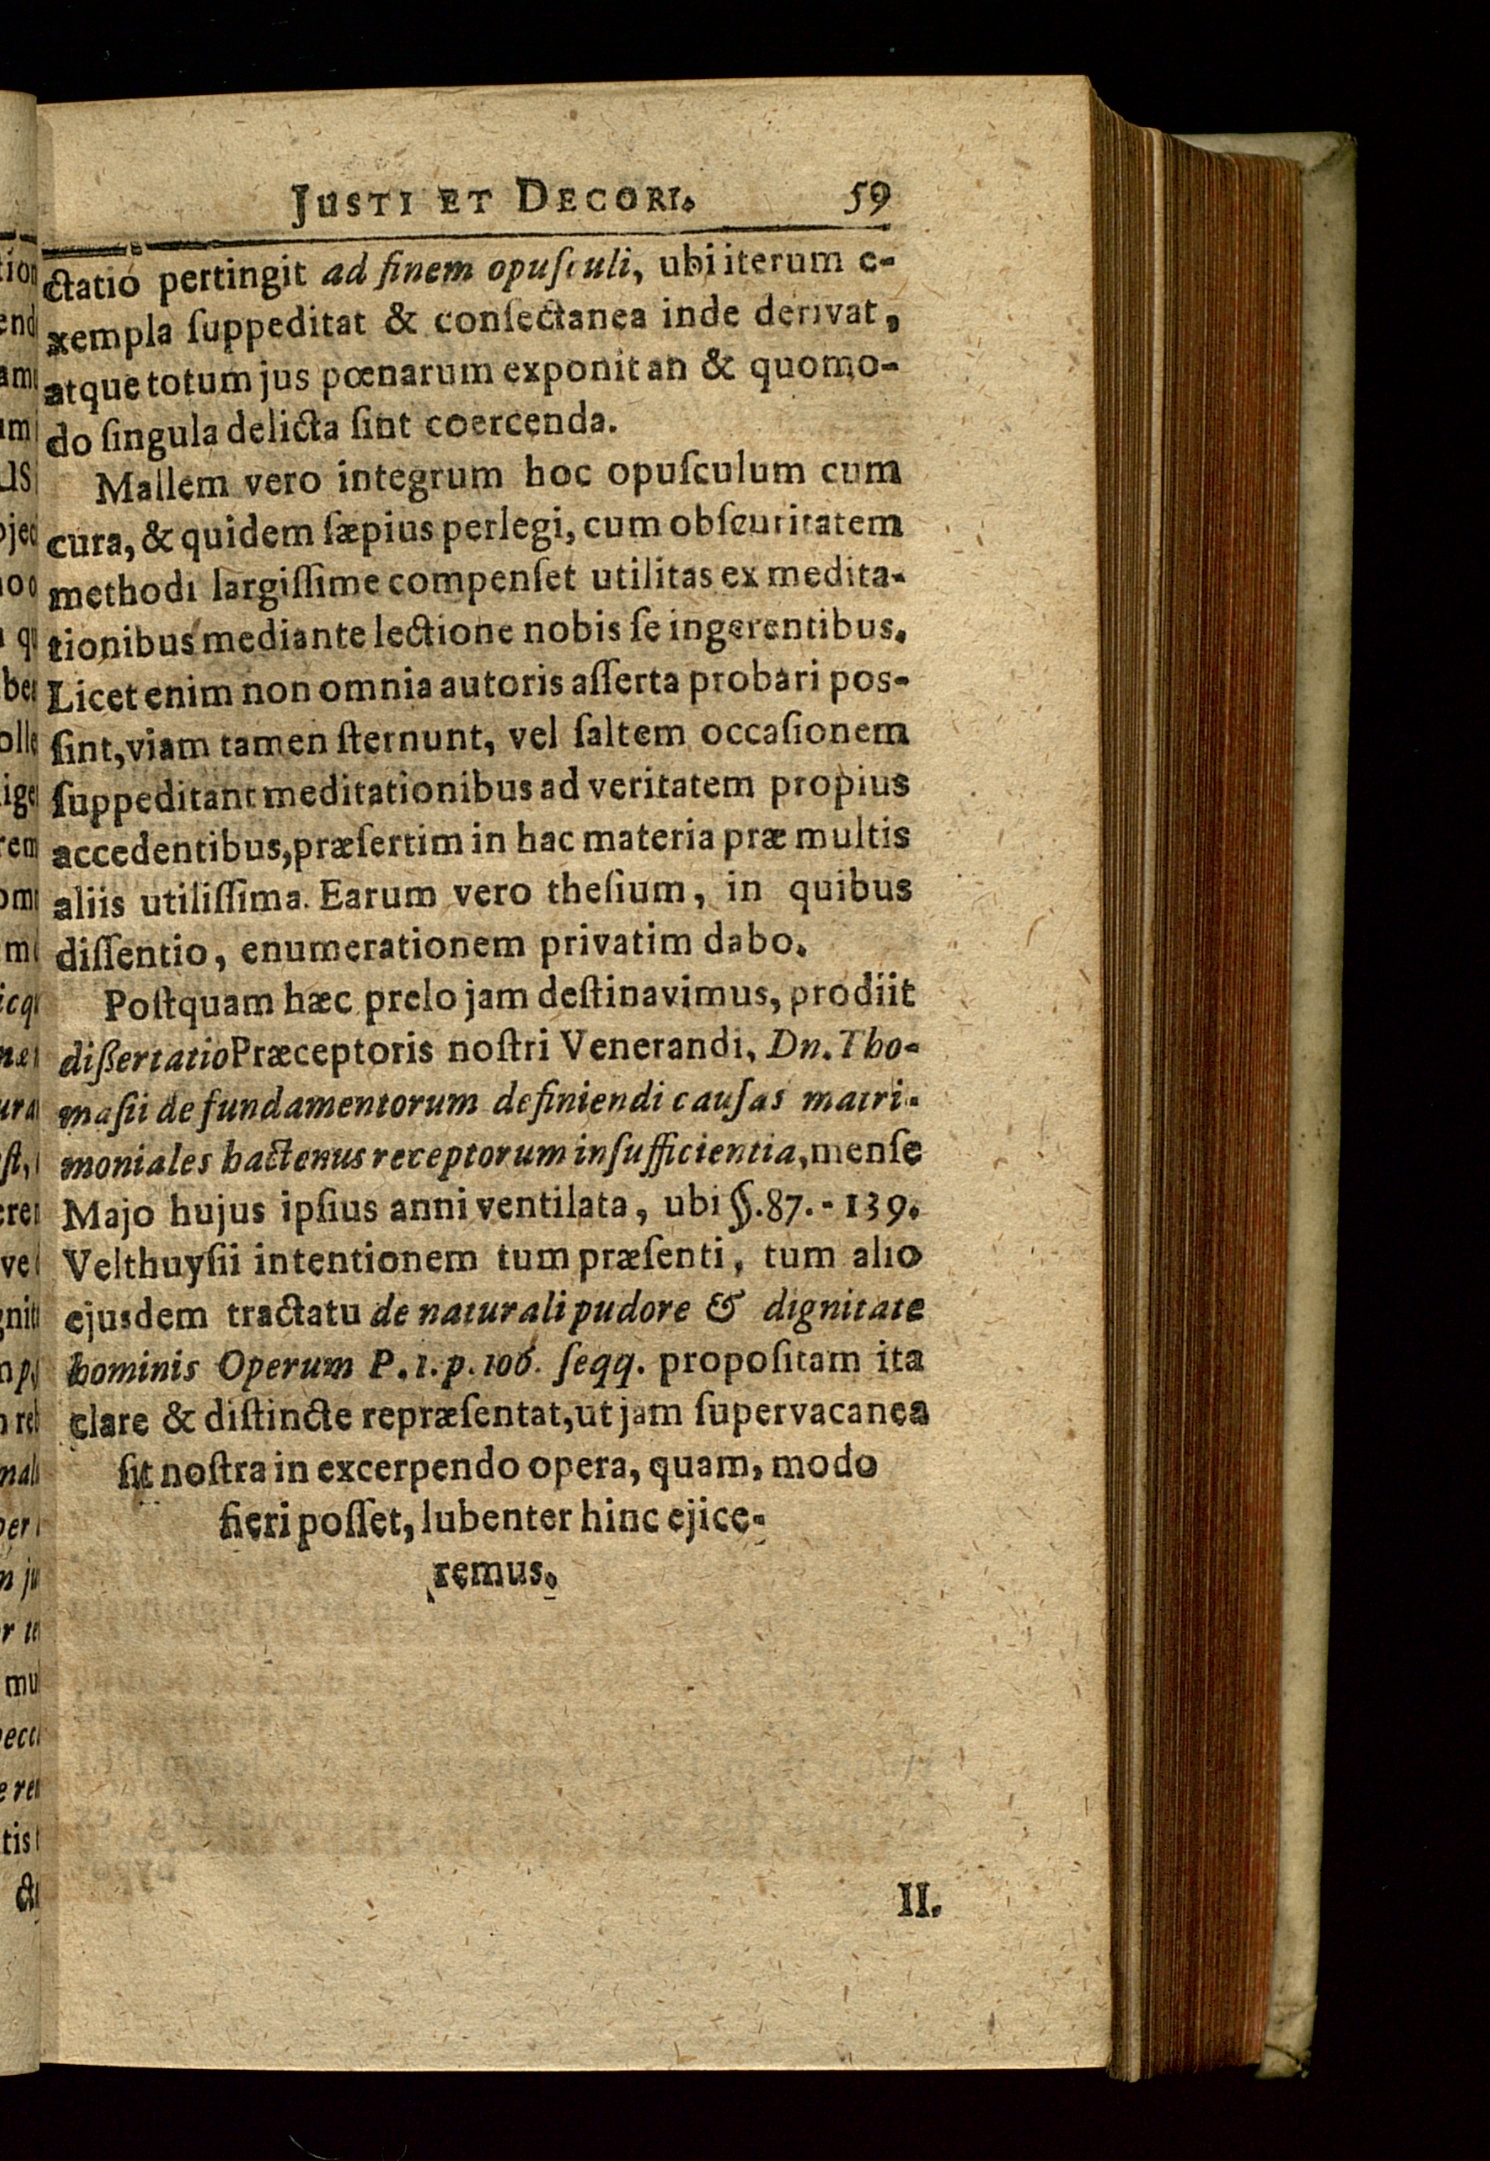 JUSTI ET DECORI. 59
ctatio pertingit ad finem opuſculi, ubi iterum e-
xempla ſuppeditat & conſectanea inde derivat,
atque totum jus pœnarum exponit an & quomo-
do ſingula delicta ſint coercenda.
Mallem vero integrum hoc opuſculum cum
cura, & quidem ſæpius perlegi, cum obſcuritatem
methodi largiſſime compenſet utilitas ex medita-
tionibus mediante lectione nobis ſe ingerentibus.
Licet enim non omnia autoris aſſerta probari pos-
ſint, viam tamen ſternunt, vel ſaltem occaſionem
ſuppeditant meditationibus ad veritatem propius
accedentibus, præſertim in hac materia præ multis
aliis utiliſſima. Earum vero theſium, in quibus
diſſentio, enumerationem privatim dabo.
Poſtquam hæc prelo jam deſtinavimus, prodiit
dißertatio Præceptoris noſtri Venerandi, Dn. Tho-
maſii de fundamentorum definiendi cauſas matri-
moniales hactenus receptorum inſufficientia, menſe
Majo hujus ipſius anni ventilata, ubi §. 87. - 139.
Velthuyſii intentionem tum præſenti, tum alio
ejusdem tractatu de naturali pudore & dignitate
hominis Operum P. 1. p. 106. ſeqq. propoſitam ita
clare & diſtincte repræſentat, ut jam ſupervacanea
ſit noſtra in excerpendo opera, quam, modo
fieri poſſet, lubenter hinc ejice-
remus.
II.